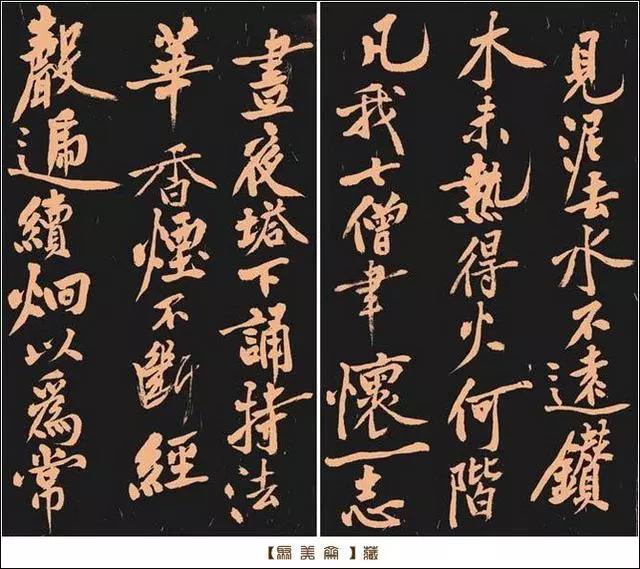 見泥去水不遠鑽
木未熱得火何階
凡我七僧聿懷一志
晝夜塔下誦持法
華香煙不斷經
聲遍續炯以爲常
美 藏